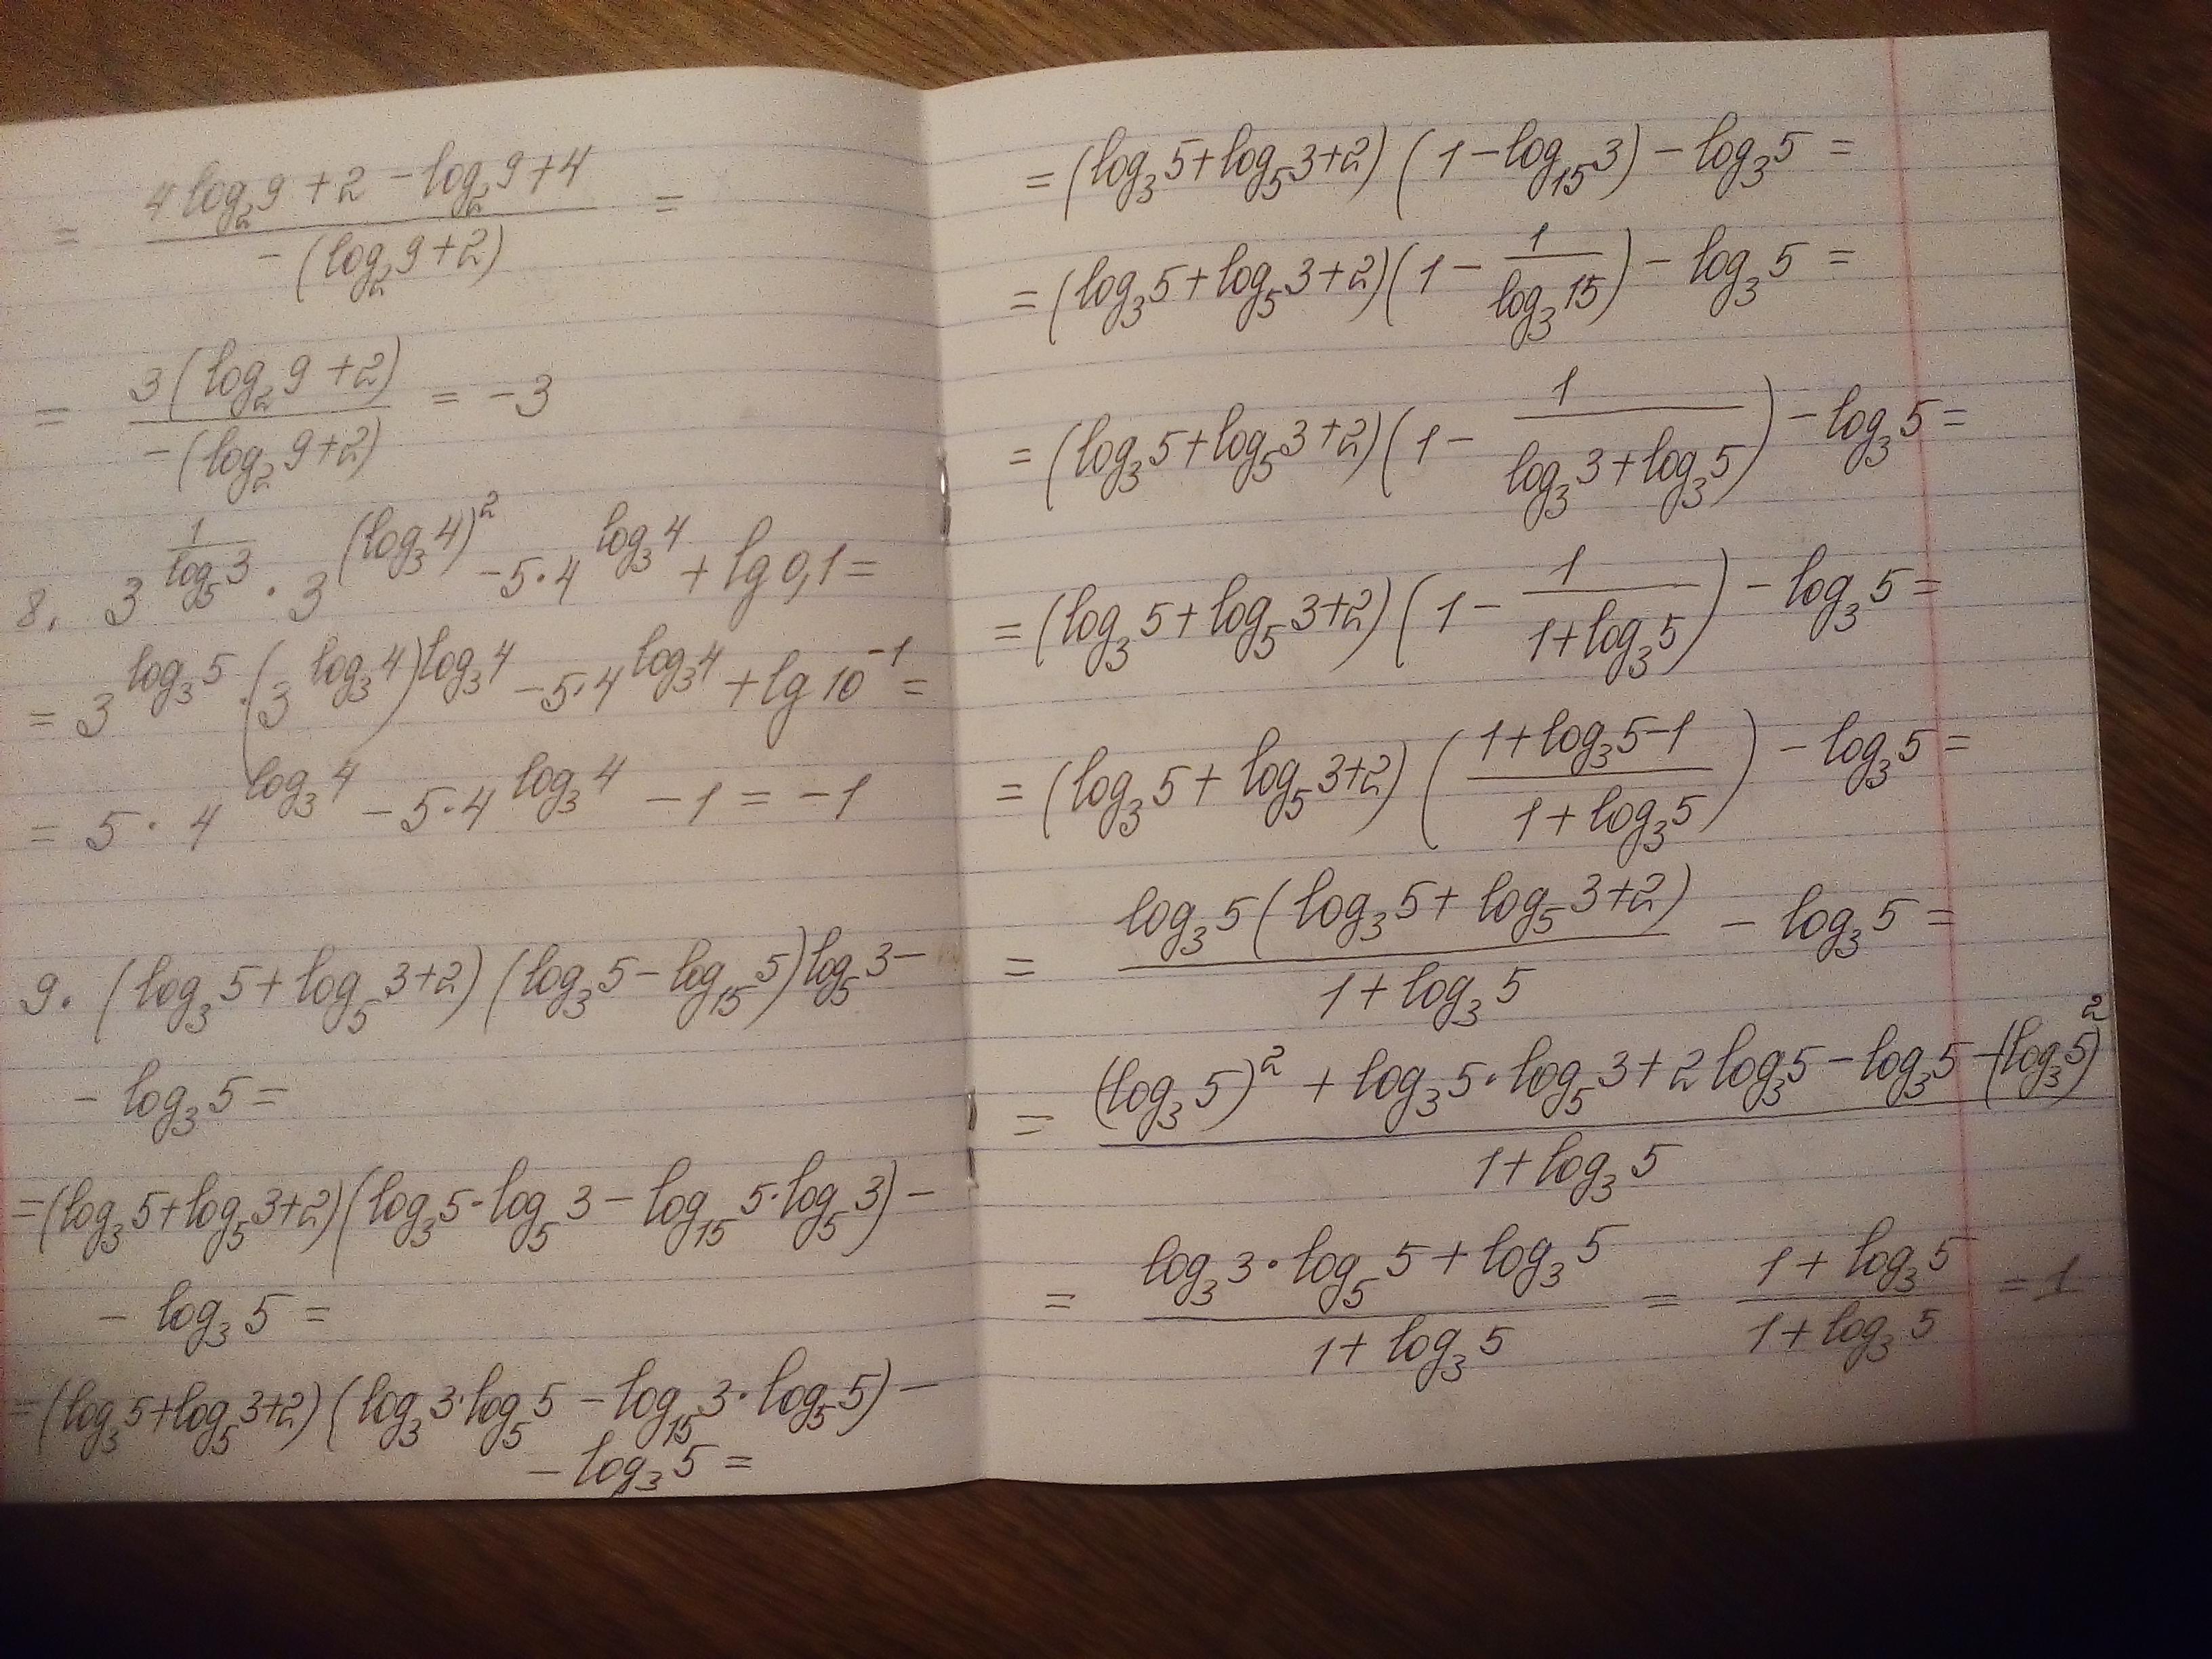 = (4 log₂9 + 2 - log₂9 + 4)/(-(log₂9 + 2)) =
= (3(log₂9 + 2))/(-(log₂9 + 2)) = -3
8. 3^(1/log₅3) · 3^((log₃4)²) - 5·4^(log₃4) + lg 0,1 =
= 3^(log₃5) · (3^(log₃4))^(log₃4) - 5·4^(log₃4) + lg 10⁻¹ =
= 5 · 4^(log₃4) - 5·4^(log₃4) - 1 = -1
9. (log₃5 + log₅3 + 2)(log₃5 - log₁₅5)log₅3 -
- log₃5 =
= (log₃5 + log₅3 + 2)(log₃5·log₅3 - log₁₅5·log₅3) -
- log₃5 =
= (log₃5 + log₅3 + 2)(log₃3·log₅5 - log₁₅3·log₅5) -
- log₃5 =
= (log₃5 + log₅3 + 2)(1 - log₁₅3) - log₃5 =
= (log₃5 + log₅3 + 2)(1 - 1/log₃15) - log₃5 =
= (log₃5 + log₅3 + 2)(1 - 1/(log₃3 + log₃5)) - log₃5 =
= (log₃5 + log₅3 + 2)(1 - 1/(1 + log₃5)) - log₃5 =
= (log₃5 + log₅3 + 2)((1 + log₃5 - 1)/(1 + log₃5)) - log₃5 =
= (log₃5(log₃5 + log₅3 + 2))/(1 + log₃5) - log₃5 =
= ((log₃5)² + log₃5·log₅3 + 2 log₃5 - log₃5 - (log₃5)²)/(1 + log₃5)
= (log₃3·log₅5 + log₃5)/(1 + log₃5) = (1 + log₃5)/(1 + log₃5) = 1